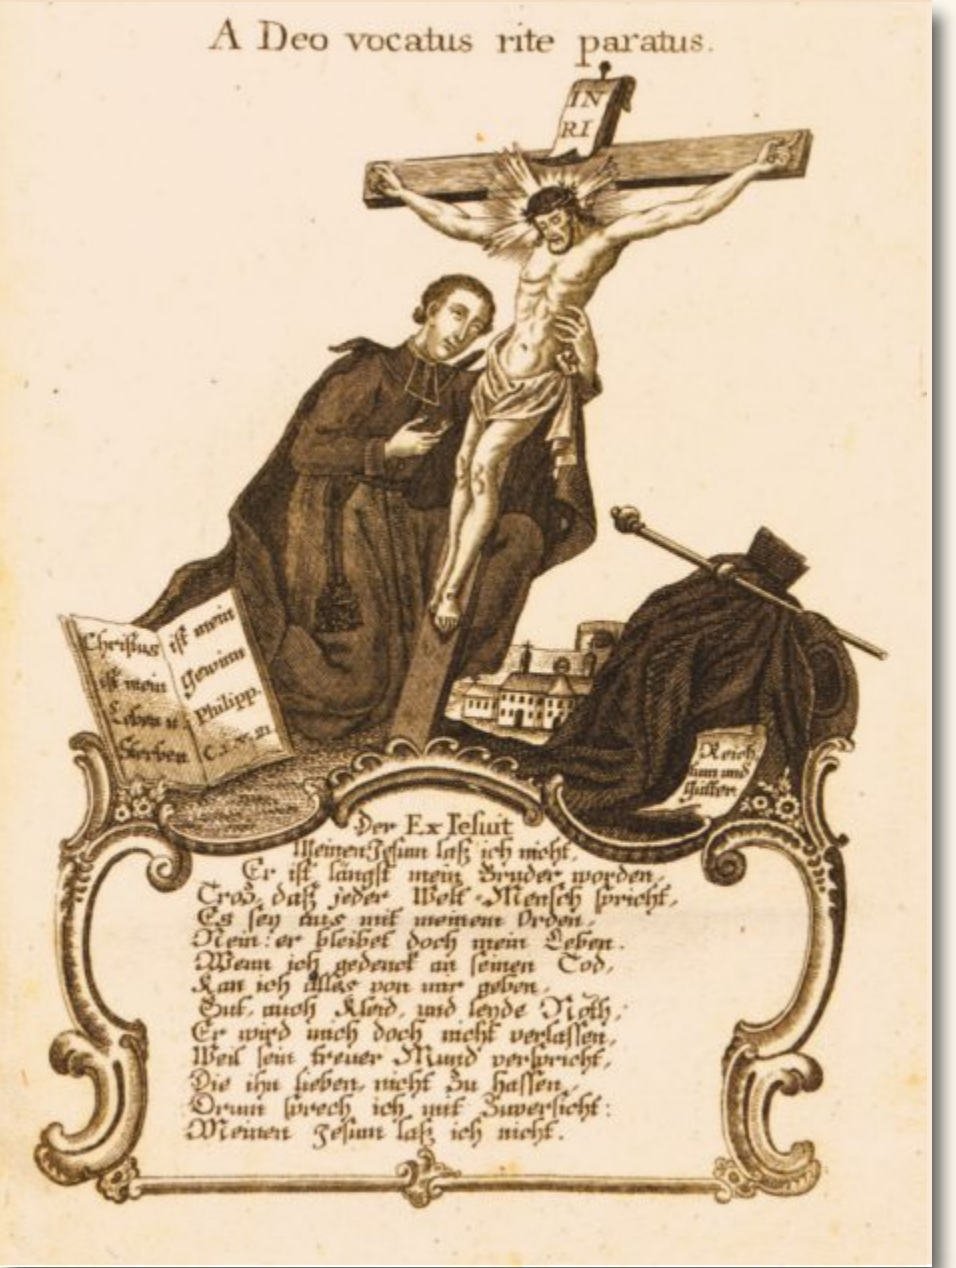 A Deo vocatus rite paratus.
IN
RI
Christus
ist mein
Leben u
Sterben
ist mein
Gewinn
Philipp.
C. 1. V. 21.
Reich
tum und
Güter
Der Ex Jesuit
Meinen Jesum laß ich nicht,
Er ist längst mein Bruder worden,
Troz, daß jeder Welt-Mensch spricht,
Es sey aus mit meinem Orden,
Nein: er bleibet doch mein Leben.
Wenn ich gedenck an seinen Tod,
Kan ich alles von mir geben,
Gut, auch Kleid, und leyde Noth,
Er wird mich doch nicht verlassen,
Weil sein treuer Mund verspricht,
Die ihn lieben, nicht zu hassen,
Drum sprech ich mit Zuversicht:
Meinen Jesum laß ich nicht.